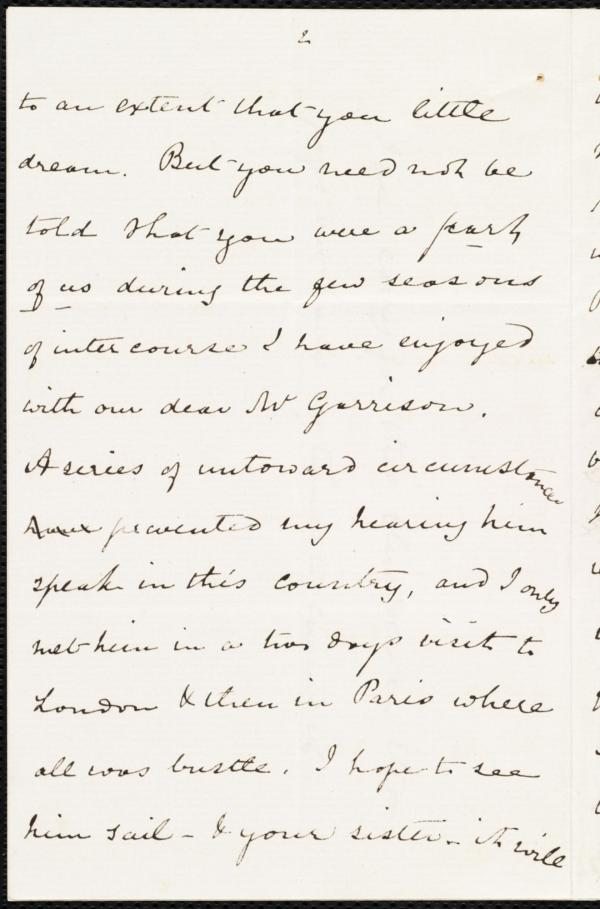 2
to an extent that you little
dream. But you need not be
told that you were a part
of us during the few seasons
of intercourse I have enjoyed
with our dear Mr Garrison.
A series of untoward circumstances
have prevented my hearing him
speak in this country, and I only
met him in a two days visit to
London & then in Paris where
all was bustle. I hope to see
him sail - & your sister - it will